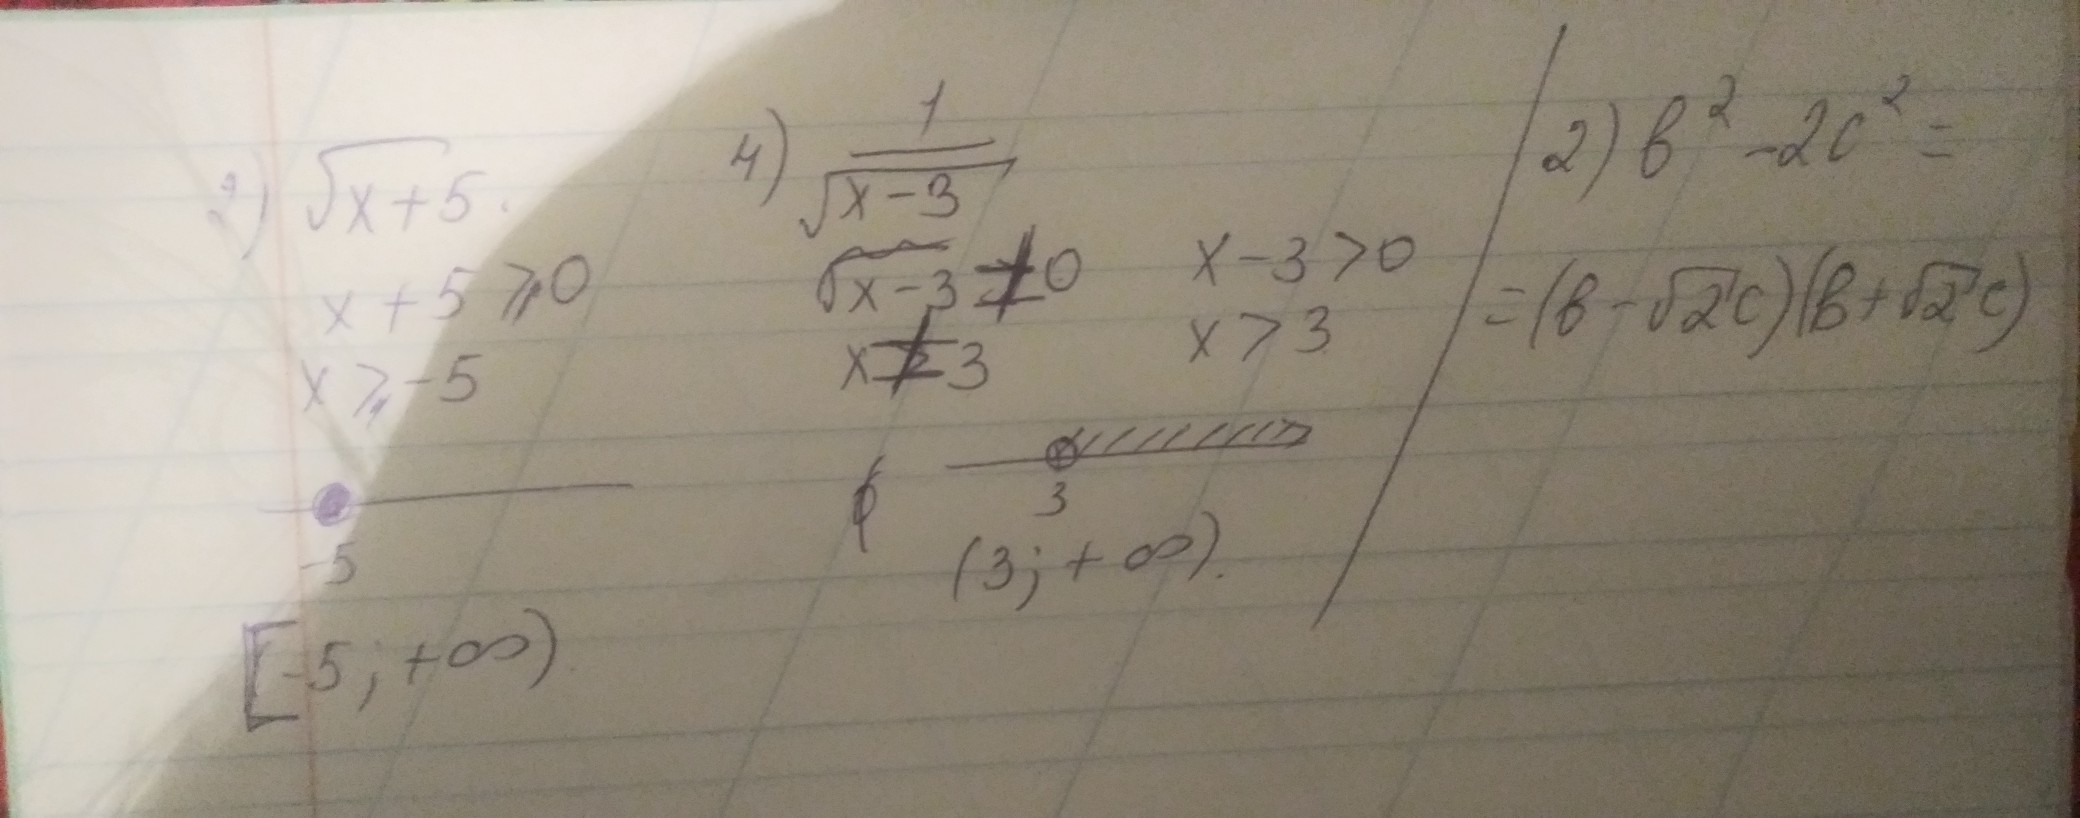 2) √x+5.
x+5⩾0
x⩾-5
-5
[-5;+∞)
4) 1/√x-3
√x-3≠0
x≠3
x-3>0
x>3
3
(3;+∞).
2) b²-2c²=
=(b-√2c)(b+√2c)